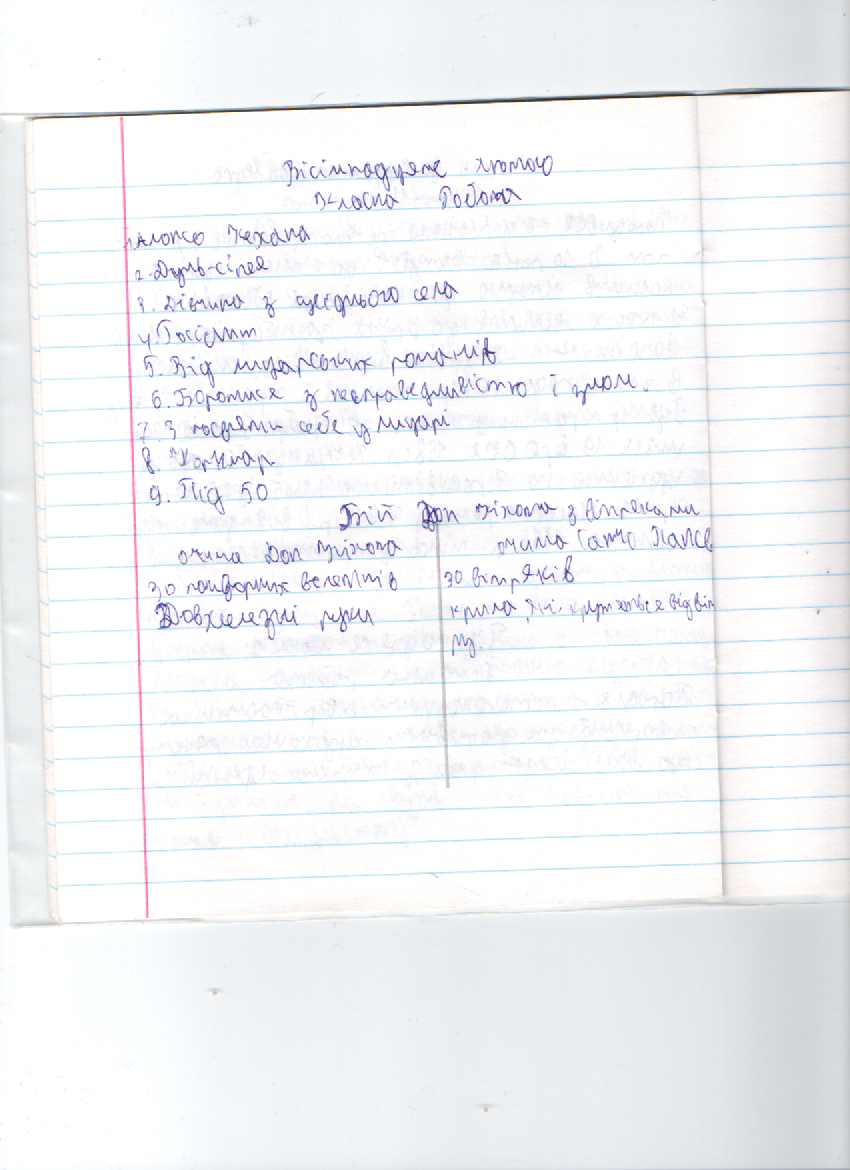 Вісімнадцяте лютого
Класна Робота
1. Алонсо Кехана
2. Дуль-сінея
3. Дівчина з сусіднього села
4. Росінант
5. Від лицарських романів
6. Боротися з несправедливістю і злом.
7. З посвяти себе у лицарі
8. Корчмар
9. Під 50
Бій Дон Кіхота з вітряками
очима Дон Кіхота
очима Санчо Панси
30 потворних велетнів
30 вітряків
Довжелезні руки
крила, які крутяться від віт
ру.